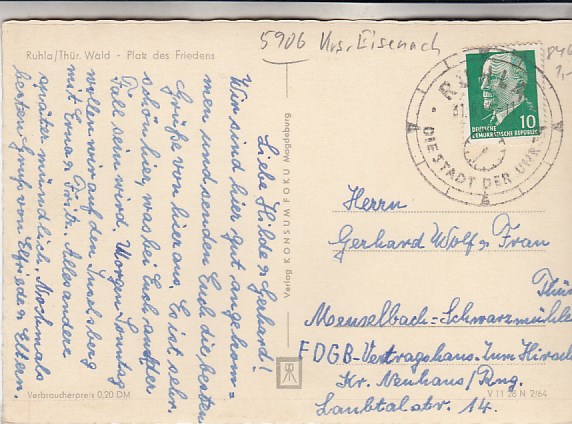 5906 Krs. Eisenach
Ruhla/Thür. Wald - Platz des Friedens
Liebe Hilde u. Gerhard!
Wir sind hier gut angekom=
men und senden Euch die besten
Grüße von hier aus. Es ist sehr
schön hier, was bei Euch auch der
Fall sein wird. Morgen Sonntag
wollen wir auf den Inselsberg
mit Erna u. Fritz. Alles andere
später mündlich. Nochmals
besten Gruß von Elfriede u. Eltern.
Verbraucherpreis 0,20 DM
Verlag KONSUM FOKU Magdeburg
RUHLA
DIE STADT DER UHREN
10
DEUTSCHE
DEMOKRATISCHE REPUBLIK
Herrn
Gerhard Wolf u. Frau
Thür
Meuselbach=Schwarzmühle
FDGB-Vertragshaus Zum Hirsch
Kr. Neuhaus/Rng.
Laubtalstr. 14.
V 11 28 N 2/64